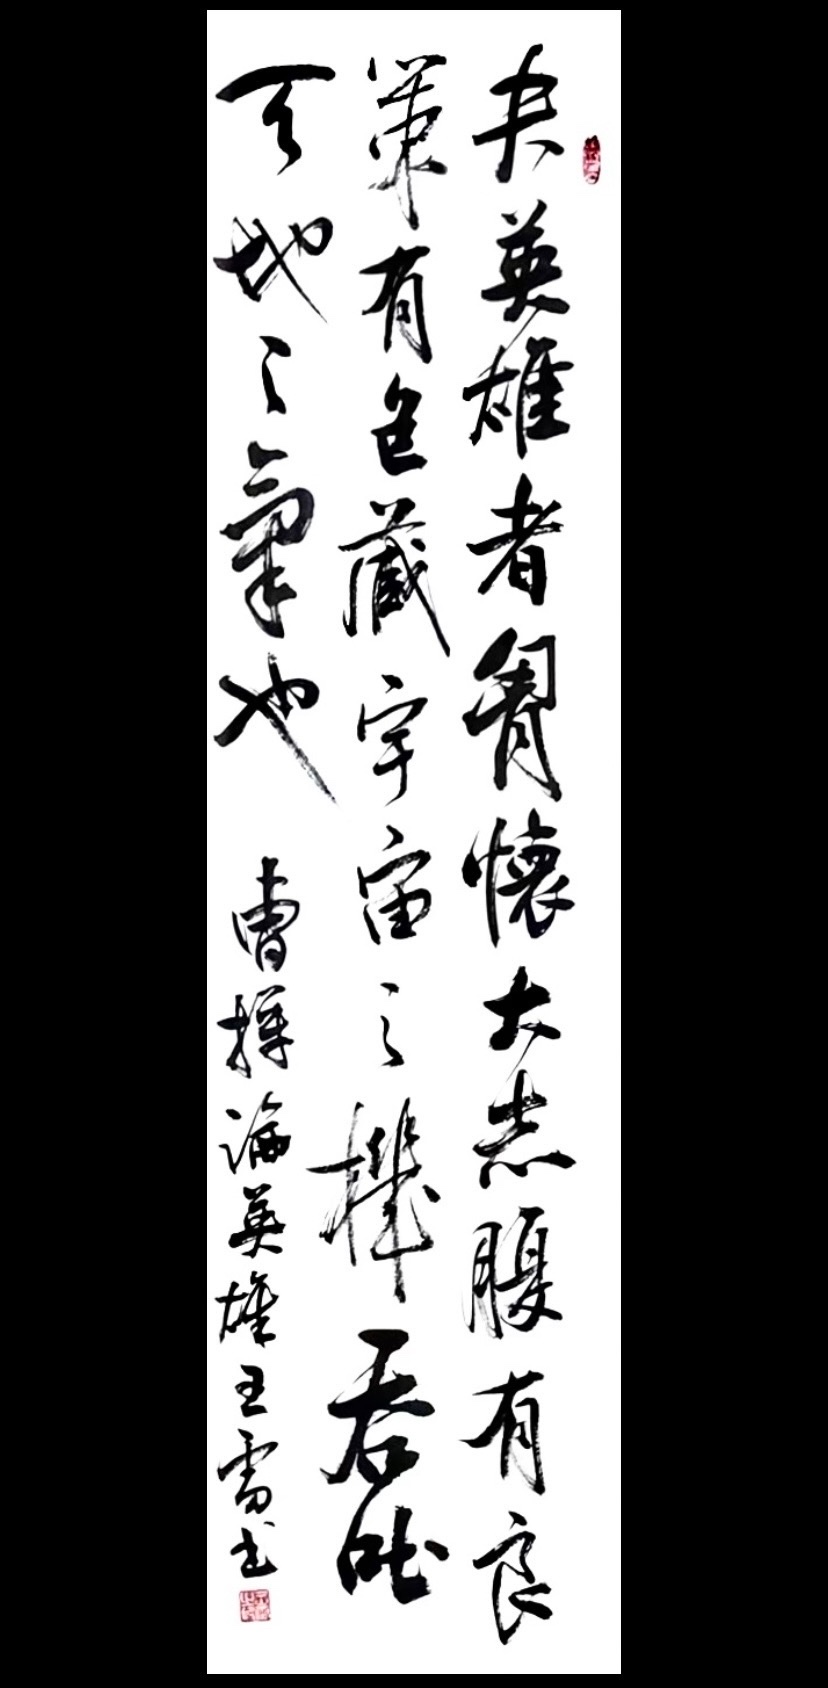 夫英雄者胷懷大志腹有良
策有包藏宇宙之機吞吐
天地之氣也
曹操論英雄王雷书